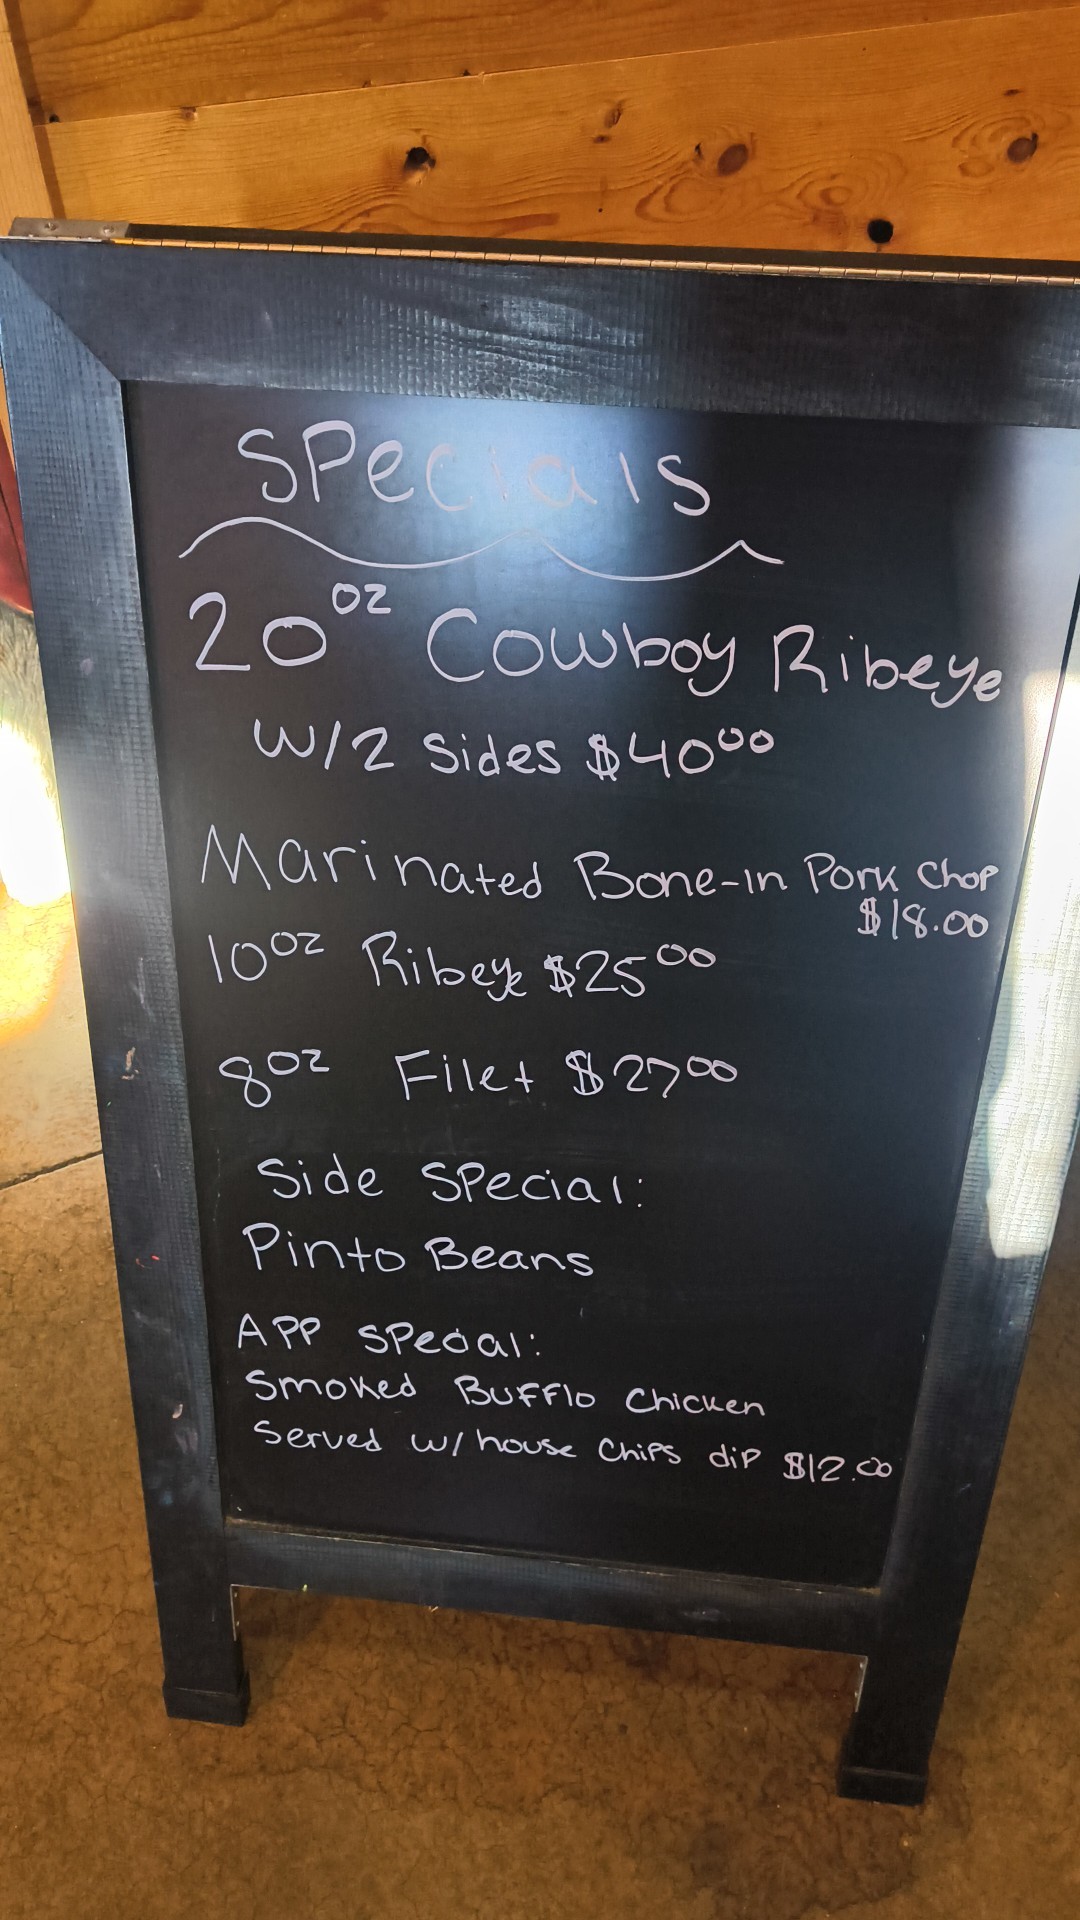 Specials
20oz Cowboy Ribeye
W/2 Sides $40⁰⁰
Marinated Bone-in Pork Chop
$18.00
10oz Ribeye $25⁰⁰
8oz Filet $27⁰⁰
Side Special:
Pinto Beans
APP Special:
Smoked Bufflo Chicken
Served w/ house Chips dip $12.00